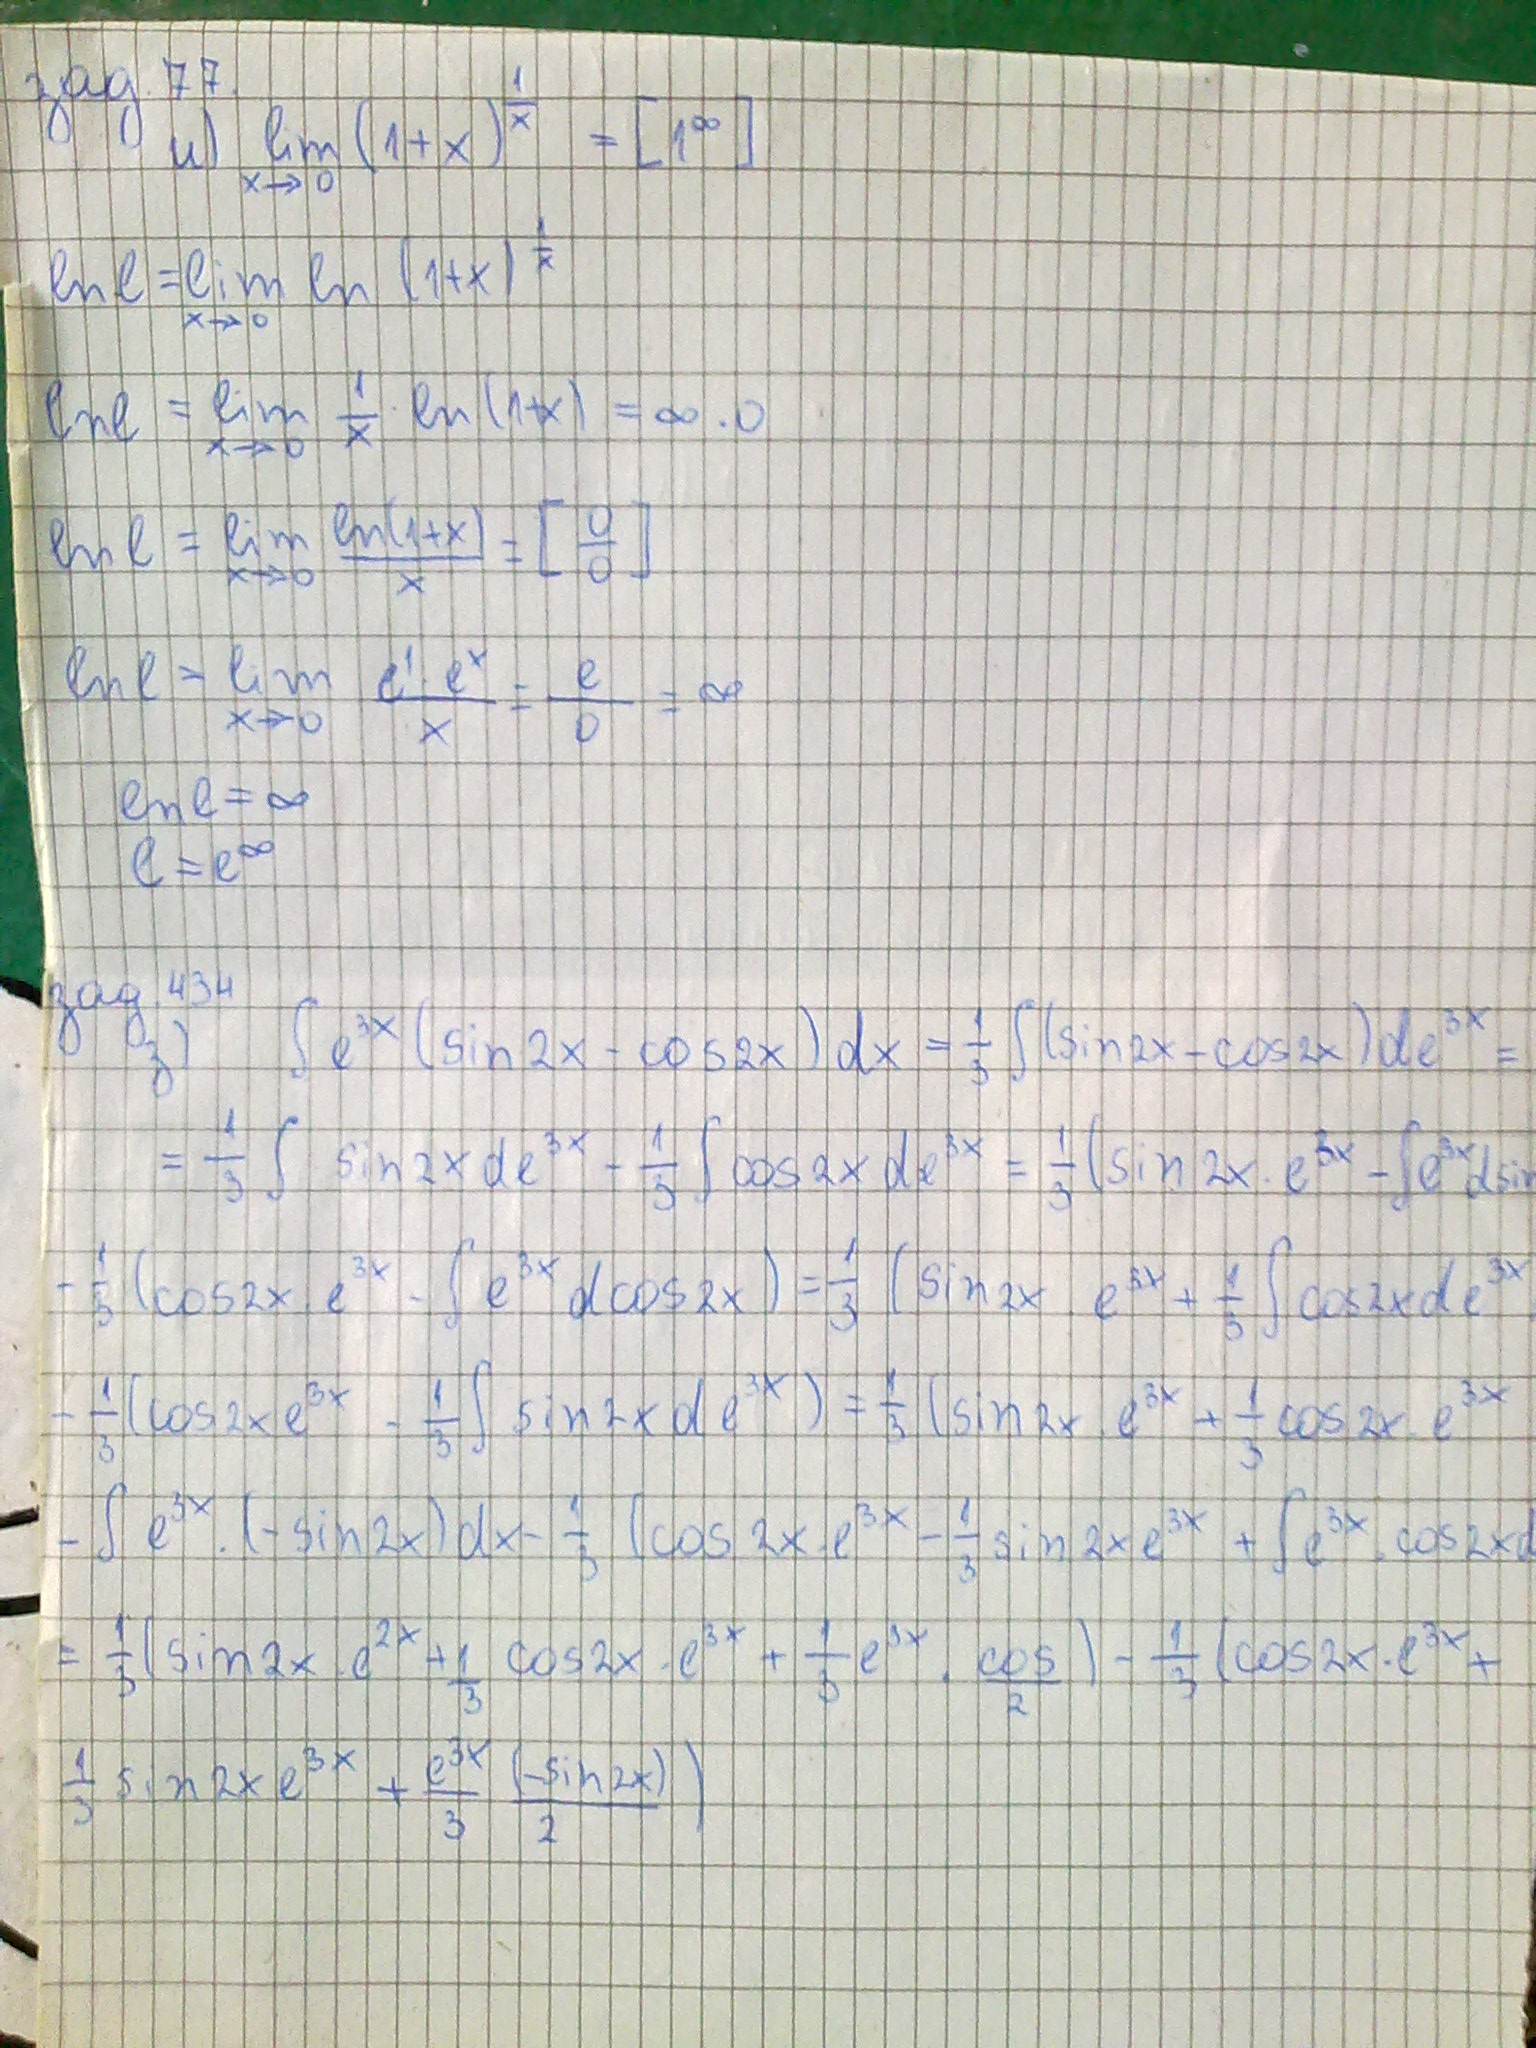 зад. 77.
и) lim x→0 (1+x)^(1/x) = [1^∞]
ln l = lim x→0 ln (1+x)^(1/x)
ln l = lim x→0 1/x . ln(1+x) = ∞.0
ln l = lim x→0 ln(1+x)/x = [0/0]
ln l = lim x→0 e^1 . e^x/x = e/0 = ∞
ln l = ∞
l = e^∞
зад. 434
з) ∫ e^3x (sin2x - cos2x) dx = 1/3 ∫(sin2x - cos2x) de^3x =
= 1/3 ∫ sin2x de^3x - 1/3 ∫ cos2x de^3x = 1/3 (sin2x . e^3x - ∫e^3x dsin
- 1/3 (cos2x . e^3x - ∫ e^3x dcos2x) = 1/3 (sin2x . e^3x + 1/3 ∫ cos2x de^3x
- 1/3 (cos2x e^3x - 1/3 ∫ sin2x de^3x) = 1/3 (sin2x . e^3x + 1/3 cos2x . e^3x
- ∫ e^3x . (-sin2x) dx - 1/3 (cos2x . e^3x - 1/3 sin2x e^3x + ∫ e^3x . cos2x d
= 1/3 (sin2x . e^2x + 1/3 cos2x . e^3x + 1/3 e^3x . cos/2) - 1/3 (cos2x . e^3x +
1/3 sin2x e^3x + e^3x/3 (-sin2x)/2)